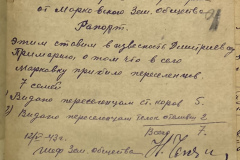 от Марковского Зем. общества
Рапорт.
Этим ставим в известность
Примарию, о том что в село
Марковку прибыло переселенцев.
7 семей
1) Выдано переселенцам ст. коров 5.
2) Выдано переселенцам телок 2
Всего 7.
Шеф Зем. общества